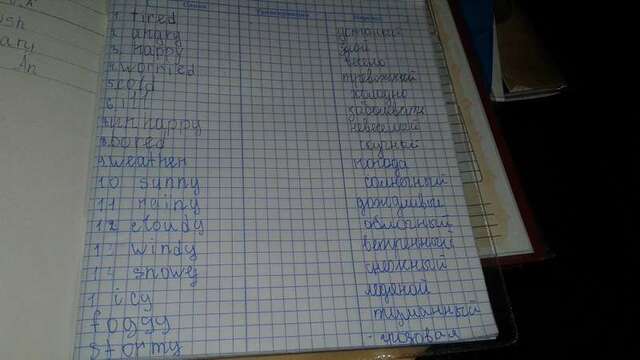 1 tired усталый
2 angry злой
3 happy весело
4 worried тревожный
5 cold холодно
6 ill заболевать
7 unhappy невеселый
8 bored скучный
9 weather погода
10 sunny солнечный
11 rainy дождливый
12 cloudy облачный
13 windy ветренный
14 snowy снежный
1 icy ледяной
foggy туманный
stormy